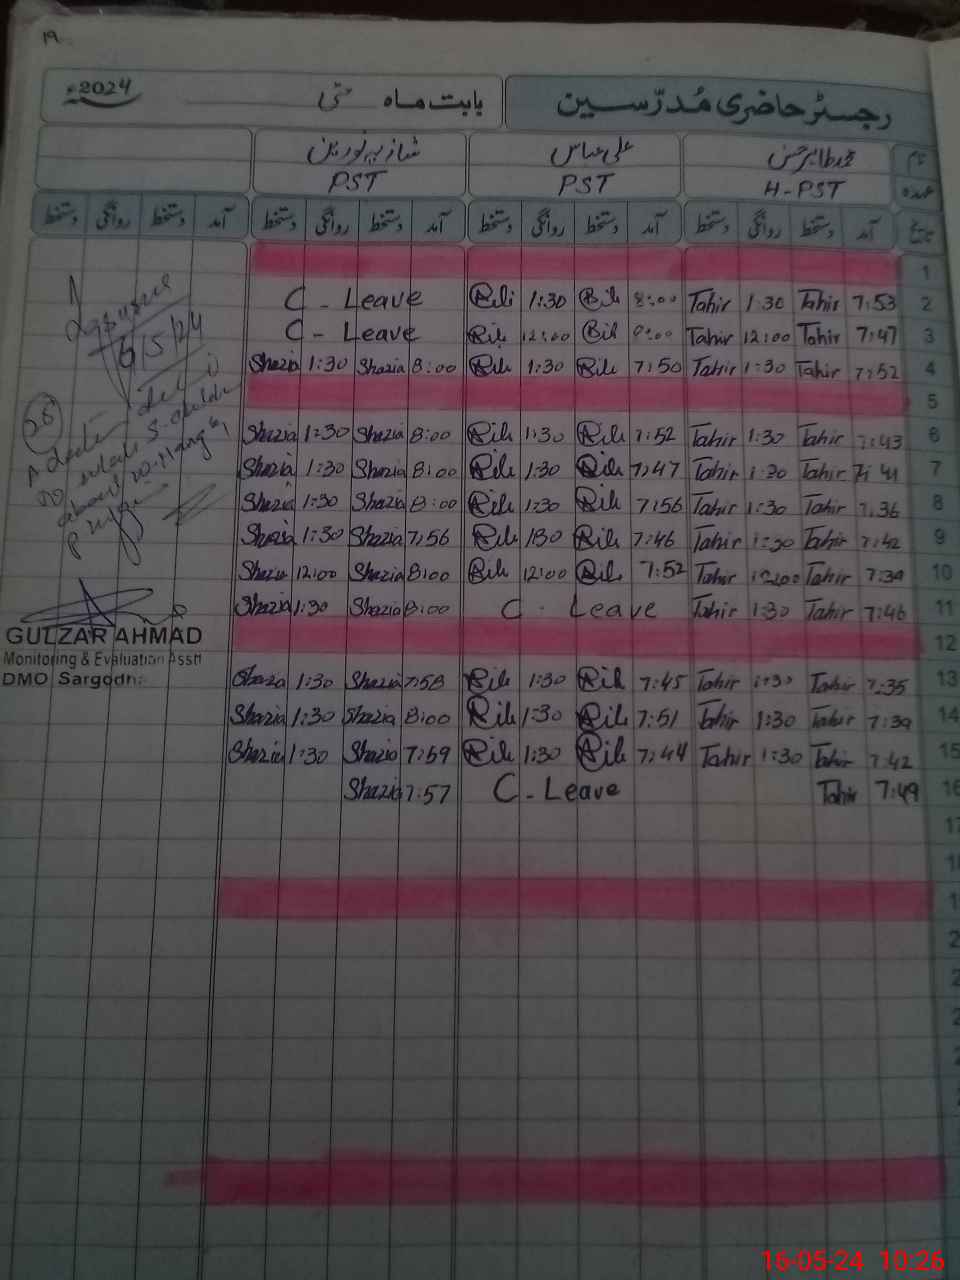 19
رجسٹر حاضری مُدرّسین بابت ماہ مئی 2024ء
نام محمد طاہر حسن علی عباس شازیہ نورین
عہدہ H-PST PST PST
تاریخ آمد دستخط روانگی دستخط آمد دستخط روانگی دستخط آمد دستخط روانگی دستخط آمد دستخط روانگی دستخط
1
C - Leave 1:30 8:00 Tahir 1:30 Tahir 7:53 2
C - Leave 12:00 Tahir 12:00 Tahir 7:47 3
Shazia 1:30 Shazia 8:00 1:30 7:50 Tahir 1:30 Tahir 7:52 4
5
Shazia 1:30 Shazia 8:00 1:30 7:52 Tahir 1:30 Tahir 7:43 6
Shazia 1:30 Shazia 8:00 1:30 7:47 Tahir 1:30 Tahir 7:41 7
Shazia 1:30 Shazia 8:00 1:30 7:56 Tahir 1:30 Tahir 7:36 8
Shazia 1:30 Shazia 7:56 130 7:46 Tahir 1:30 Tahir 7:42 9
Shazia 12:00 Shazia 8:00 12:00 7:52 Tahir 12:00 Tahir 7:39 10
Shazia 1:30 Shazia 8:00 C - Leave Tahir 1:30 Tahir 7:46 11
12
Shazia 1:30 Shazia 7:58 1:30 7:45 Tahir 1:30 Tahir 7:35 13
Shazia 1:30 Shazia 8:00 1:30 7:51 Tahir 1:30 Tahir 7:39 14
Shazia 1:30 Shazia 7:59 1:30 7:44 Tahir 1:30 Tahir 7:42 15
Shazia 7:57 C - Leave Tahir 7:49 16
17
6/5/24
GULZAR AHMAD
Monitoring & Evaluation Asstt
DMO Sargodha
16-05-24 10:26